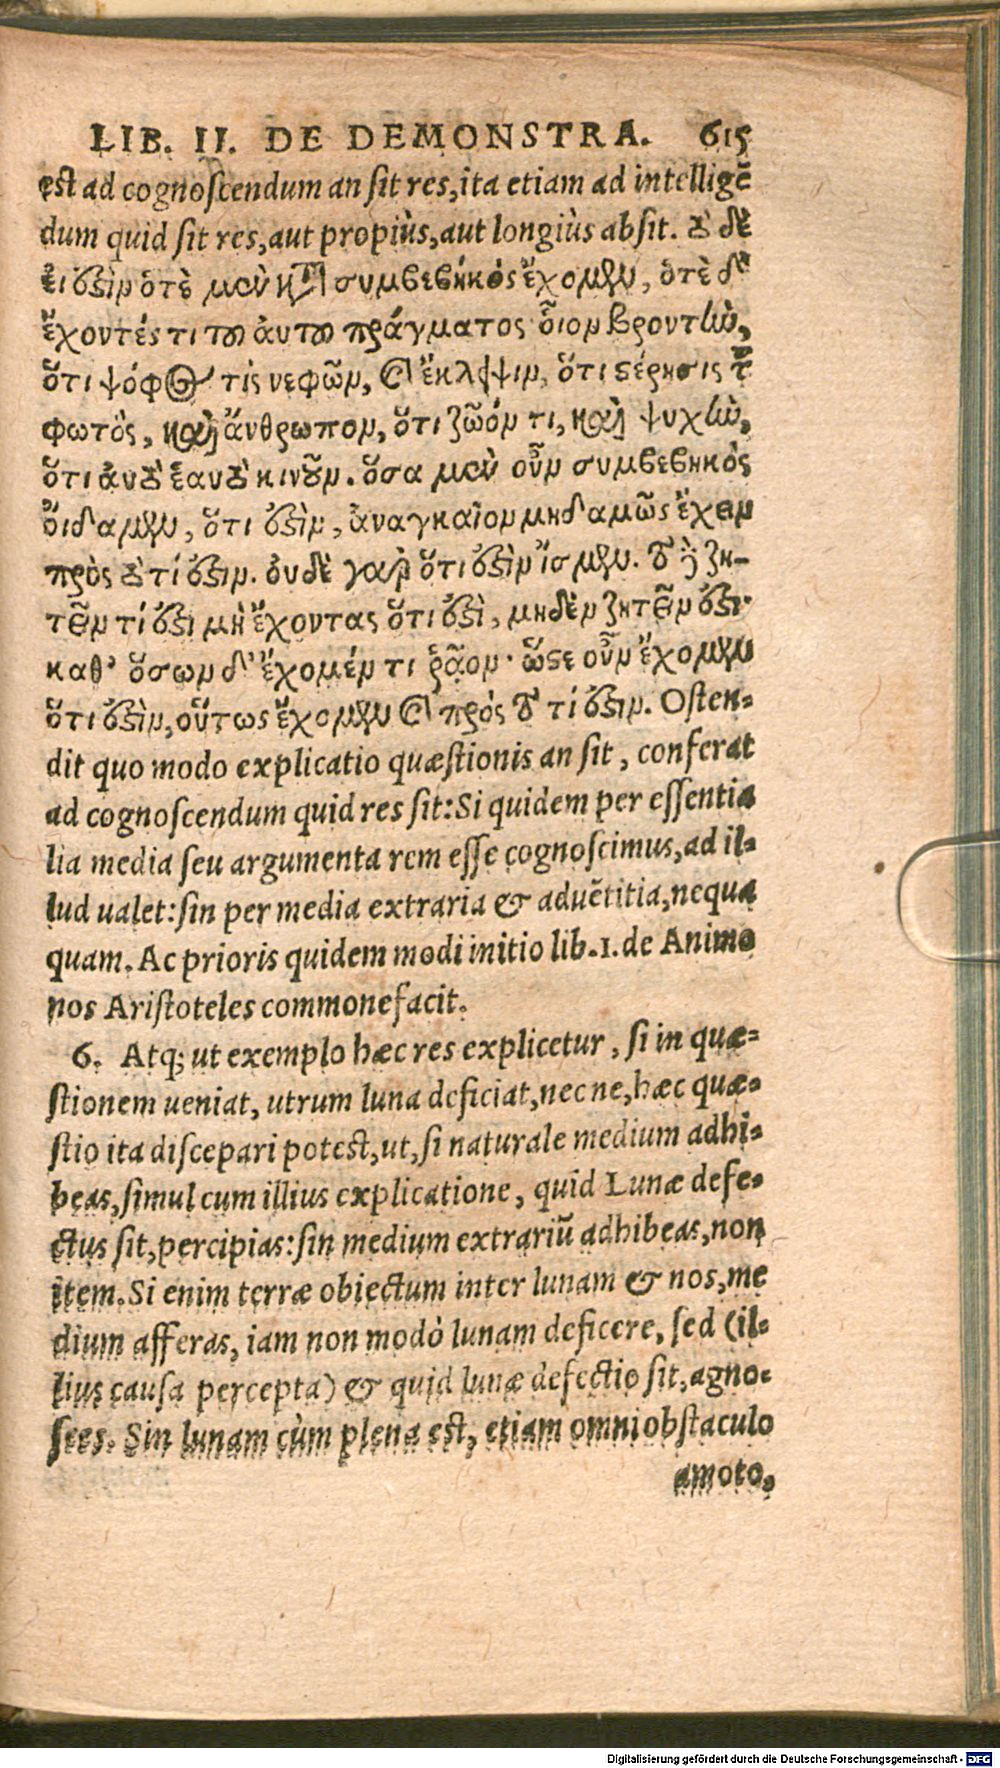 LIB. II. DE DEMONSTRA. 615
est ad cognoscendum an sit res, ita etiam ad intelligē
dum quid sit res, aut propiùs, aut longiùs absit. τὸ δὲ
εἰ ἔστιν ὁτὲ μὲν κτ συμβεβηκὸς ἔχομεν, ὁτὲ δ'
ἔχοντές τι τοῦ ἀυτοῦ πράγματος οἷον βροντὼ,
ὅτι ψόφος τὶς νεφῶν, καὶ ἔκλειψιν, ὅτι στέρησις τ
φωτὸς, καὶ ἄνθρωπον, ὅτι ζῶόν τι, καὶ ψυχὼ,
ὅτι ἀυτὸ ἑαυτὸ κινοῦν. ὅσα μὲν οὖν συμβεβηκὸς
οἴδαμεν, ὅτι ἔστιν, ἀναγκαῖον μηδαμῶς ἔχειν
πρὸς τὸ τί ἔστιν. ὀυδὲ γὰρ ὅτι ἔστιν ἴσμεν. τὸ ζη-
τεῖν τί ἔστι μὴ ἔχοντας ὅτι ἔστὶ, μηδὲν ζητεῖν ἔστι·
καθ' ὅσων δ' ἔχομέν τι ῥᾷον· ὥστε οὖν ἔχομεν
ὅτι ἔστιν, οὕτως ἔχομεν καὶ πρὸς τὸ τί ἔστιν. Osten-
dit quo modo explicatio quæstionis an sit, conferat
ad cognoscendum quid res sit: Si quidem per essentia
lia media seu argumenta rem esse cognoscimus, ad il-
lud ualet: sin per media extraria & aduētitia, nequa
quam. Ac prioris quidem modi initio lib. 1. de Animo
nos Aristoteles commonefacit.
6. Atq; ut exemplo hæc res explicetur, si in quæ-
stionem ueniat, utrum luna deficiat, nec ne, hæc quæ-
stio ita discepari potest, ut, si naturale medium adhi-
beas, simul cum illius explicatione, quid Lunæ defe-
ctus sit, percipias: sin medium extrariū adhibeas, non
item. Si enim terræ obiectum inter lunam & nos, me
dium afferas, iam non modò lunam deficere, sed (il-
lius causa percepta) & quid lunæ defectio sit, agno-
sces. Sin lunam cùm plena est, etiam omni obstaculo
amoto,
Digitalisierung gefördert durch die Deutsche Forschungsgemeinschaft - DFG